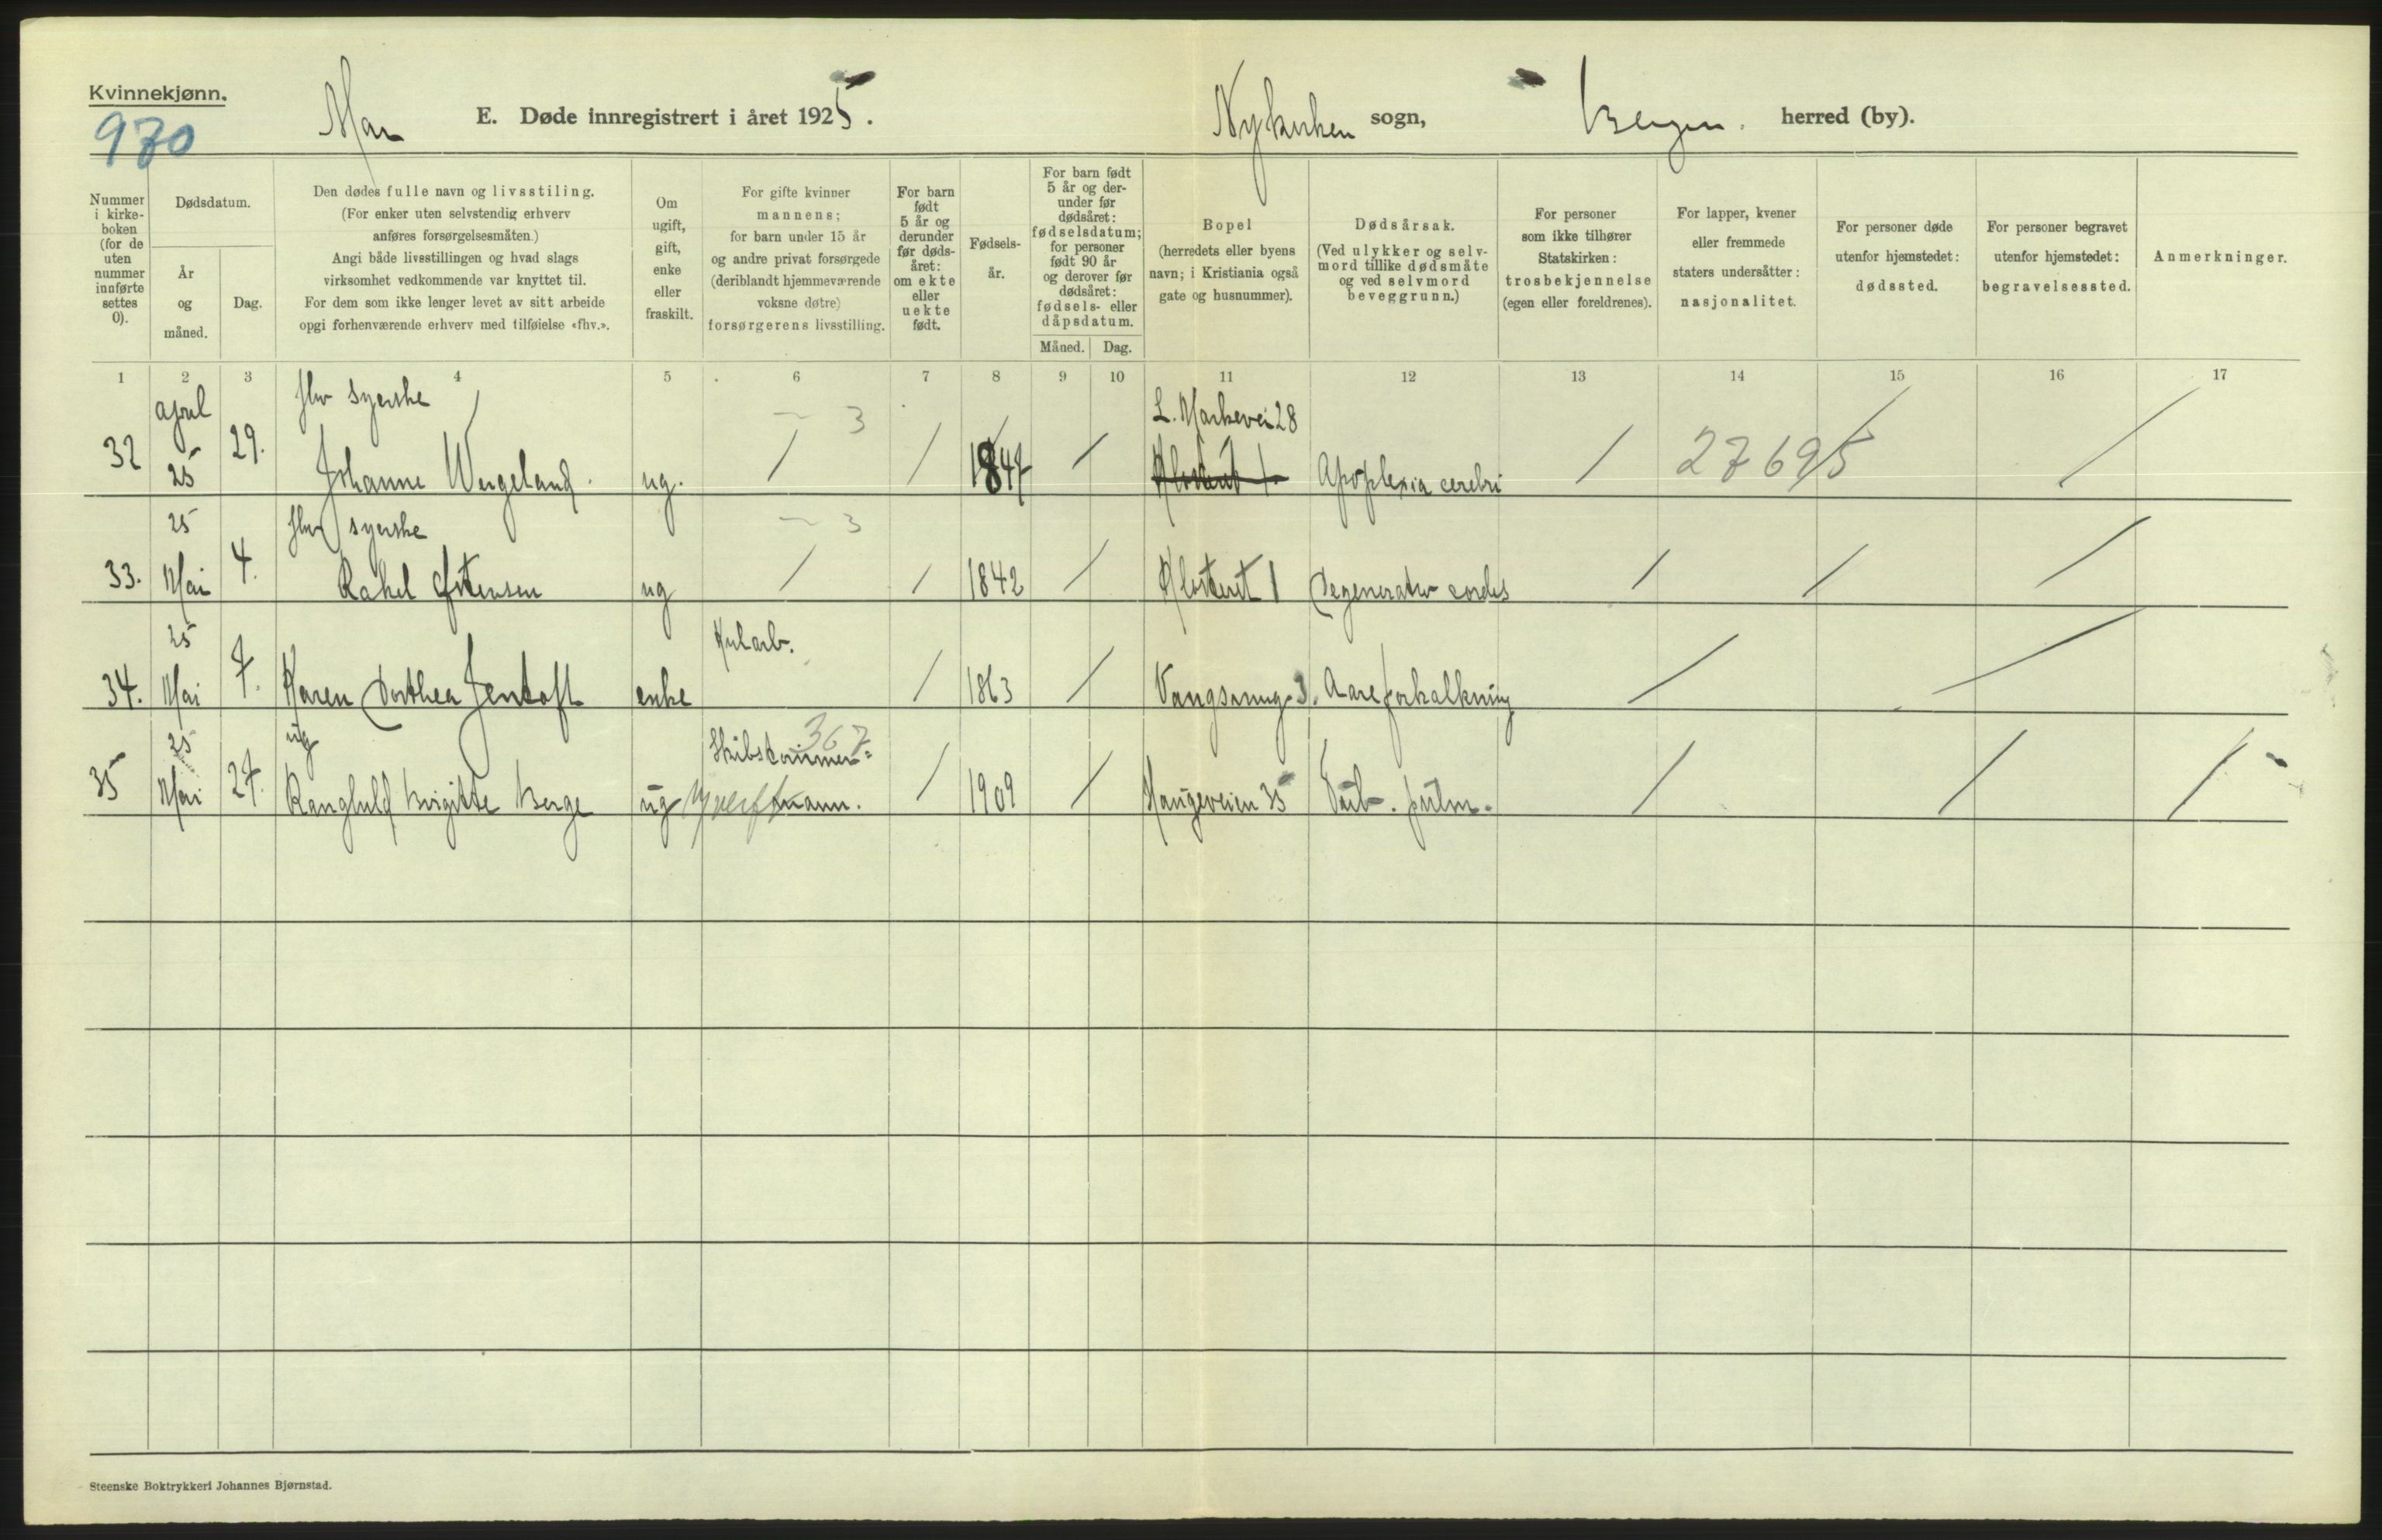 Kvinnekjønn.
970
Mai
E. Døde innregistrert i året 1925.
Nykirken sogn,
Bergen. herred (by).
Nummer
i kirke-
boken
(for de
uten
nummer
innførte
settes
0).
Dødsdatum.
År
og
måned.
Dag.
Den dødes fulle navn og livsstiling.
(For enker uten selvstendig erhverv
anføres forsørgelsesmåten.)
Angi både livsstillingen og hvad slags
virksomhet vedkommende var knyttet til.
For dem som ikke lenger levet av sitt arbeide
opgi forhenværende erhverv med tilføielse «fhv.».
Om
ugift,
gift,
enke
eller
fraskilt.
For gifte kvinner
mannens;
for barn under 15 år
og andre privat forsørgede
(deriblandt hjemmeværende
voksne døtre)
forsørgerens livsstilling.
For barn
født
5 år og
derunder
før døds-
året:
om ekte
eller
uekte
født.
Fødsels-
år.
For barn født
5 år og der-
under før
dødsåret:
fødselsdatum;
for personer
født 90 år
og derover før
dødsåret:
fødsels- eller
dåpsdatum.
Måned. Dag.
Bopel
(herredets eller byens
navn; i Kristiania også
gate og husnummer).
Dødsårsak.
(Ved ulykker og selv-
mord tillike dødsmåte
og ved selvmord
beveggrunn.)
For personer
som ikke tilhører
Statskirken:
trosbekjennelse
(egen eller foreldrenes).
For lapper, kvener
eller fremmede
staters undersåtter:
nasjonalitet.
For personer døde
utenfor hjemstedet:
dødssted.
For personer begravet
utenfor hjemstedet:
begravelsessted.
Anmerkninger.
1 2 3 4 5 6 7 8 9 10 11 12 13 14 15 16 17
april fhv syerske — 3 L. Markevei 28
32 25 29. Johanne Wergeland. ug. / / 1847 / Klosteret 1 Apoplexia cerebri / 27695 /
25 fhv syerske — 3
33. Mai 4. Rakel Østensen ug / / 1842 / Klosteret 1 Degeneratio cordis / / /
25 Kularb.
34. Mai 7. Karen Dorthea Jentoft enke / 1863 / 3. Aareforkalkning / /
25 ug Skibstømmer= 367
35 Mai 27. Birgitte Berge ug mann. / 1909 / Haugeveien 35 Tub. pulm. / / /
Steenske Boktrykkeri Johannes Bjørnstad.